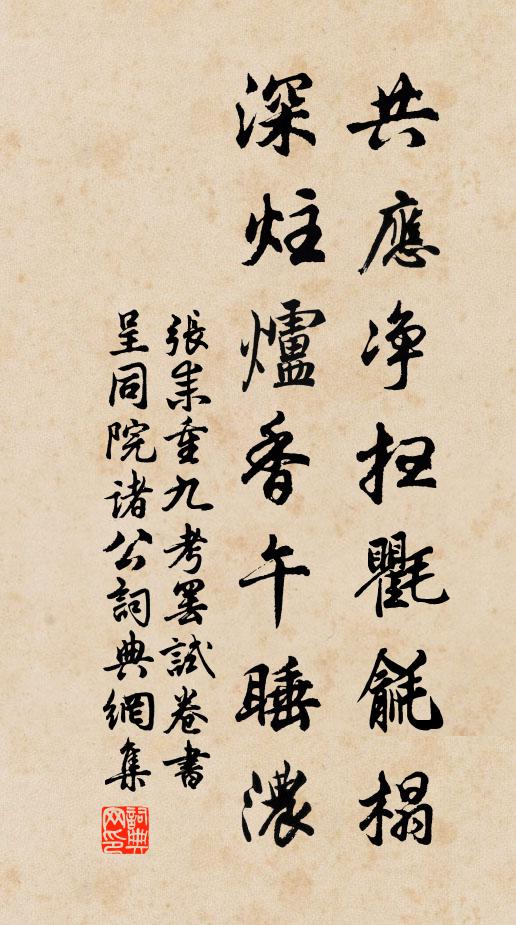 共應净扫氍毹榻
深炷爐香午睡濃
張耒重九考罢試卷書
呈同院諸公詞典網集
詞典网印